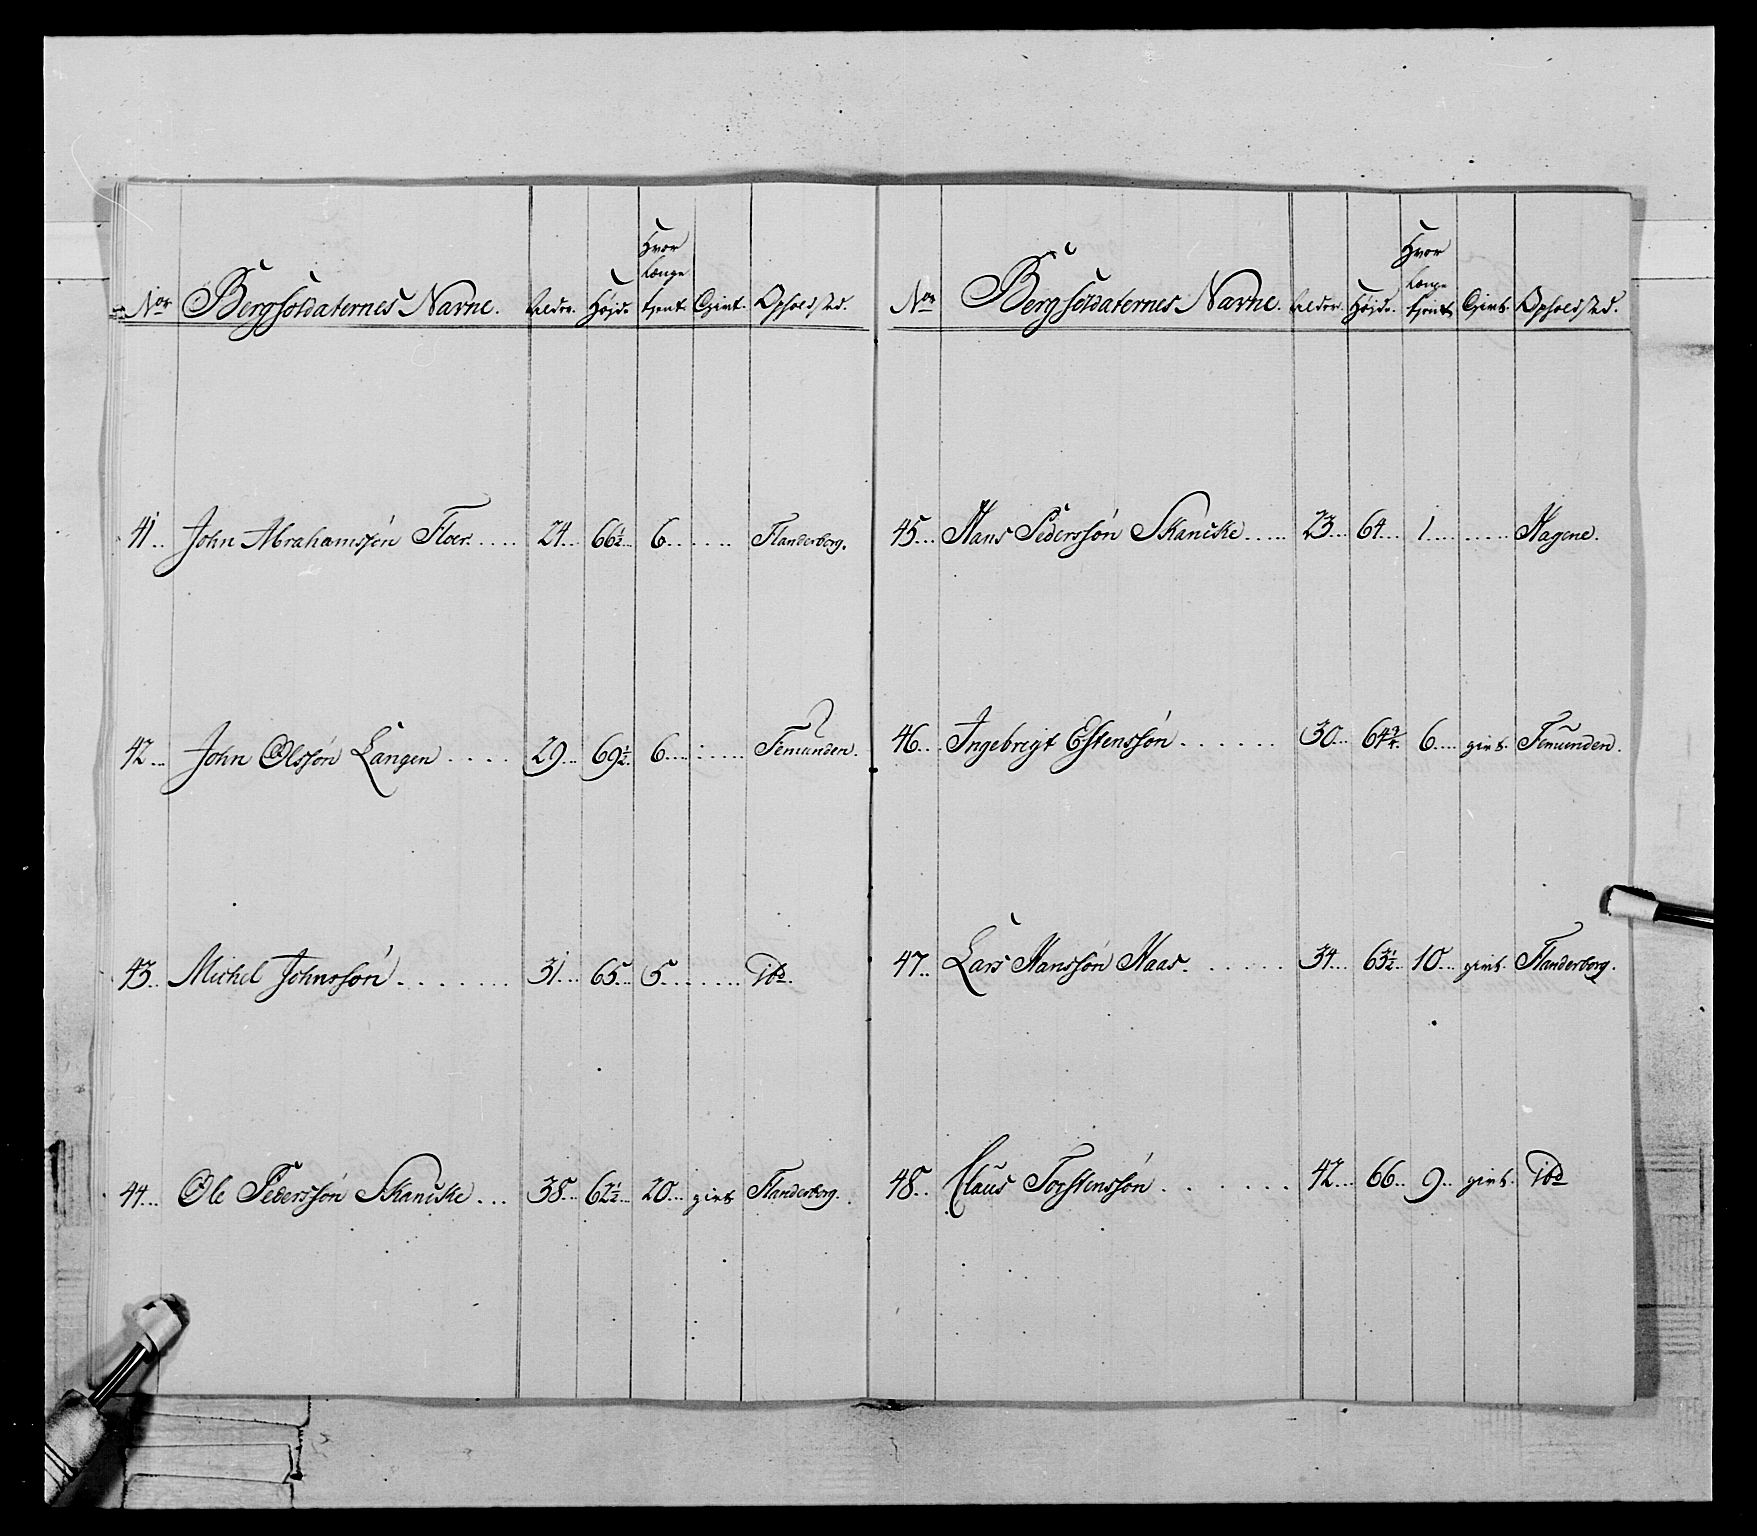 Nor Bergsoldaternes Navne. Alder. Højde Hvor længe tjent. Givt. Opholdsted.
41.. John Abrahamssøn Floer..... 24... 66½... 6....... Flanderberg.
42... John Olssøn Langen ..... 29... 69½... 6......... Femunden.
43.. Michel Johnssøn........ 31... 65... 5........ ibd.
44... Ole Pederssøn Skancke... 38... 62½... 20... givt Flanderberg.
Nor Bergsoldaternes Navne. Alder. Højde. Hvor længe tjent Givt. Opholdsted.
45... Hans Pederssøn Skancke..... 23... 64... 1.......... Hagene.
46... Ingebrigt Estenssøn...... 30... 64¾ 6.... givt. Femunden.
47.. Lars Hanssøn Haas...... 34... 63½.. 10... givt. Flanderborg.
48.. Claus Torstenssøn....... 42... 66.. 9.. givt. ibd